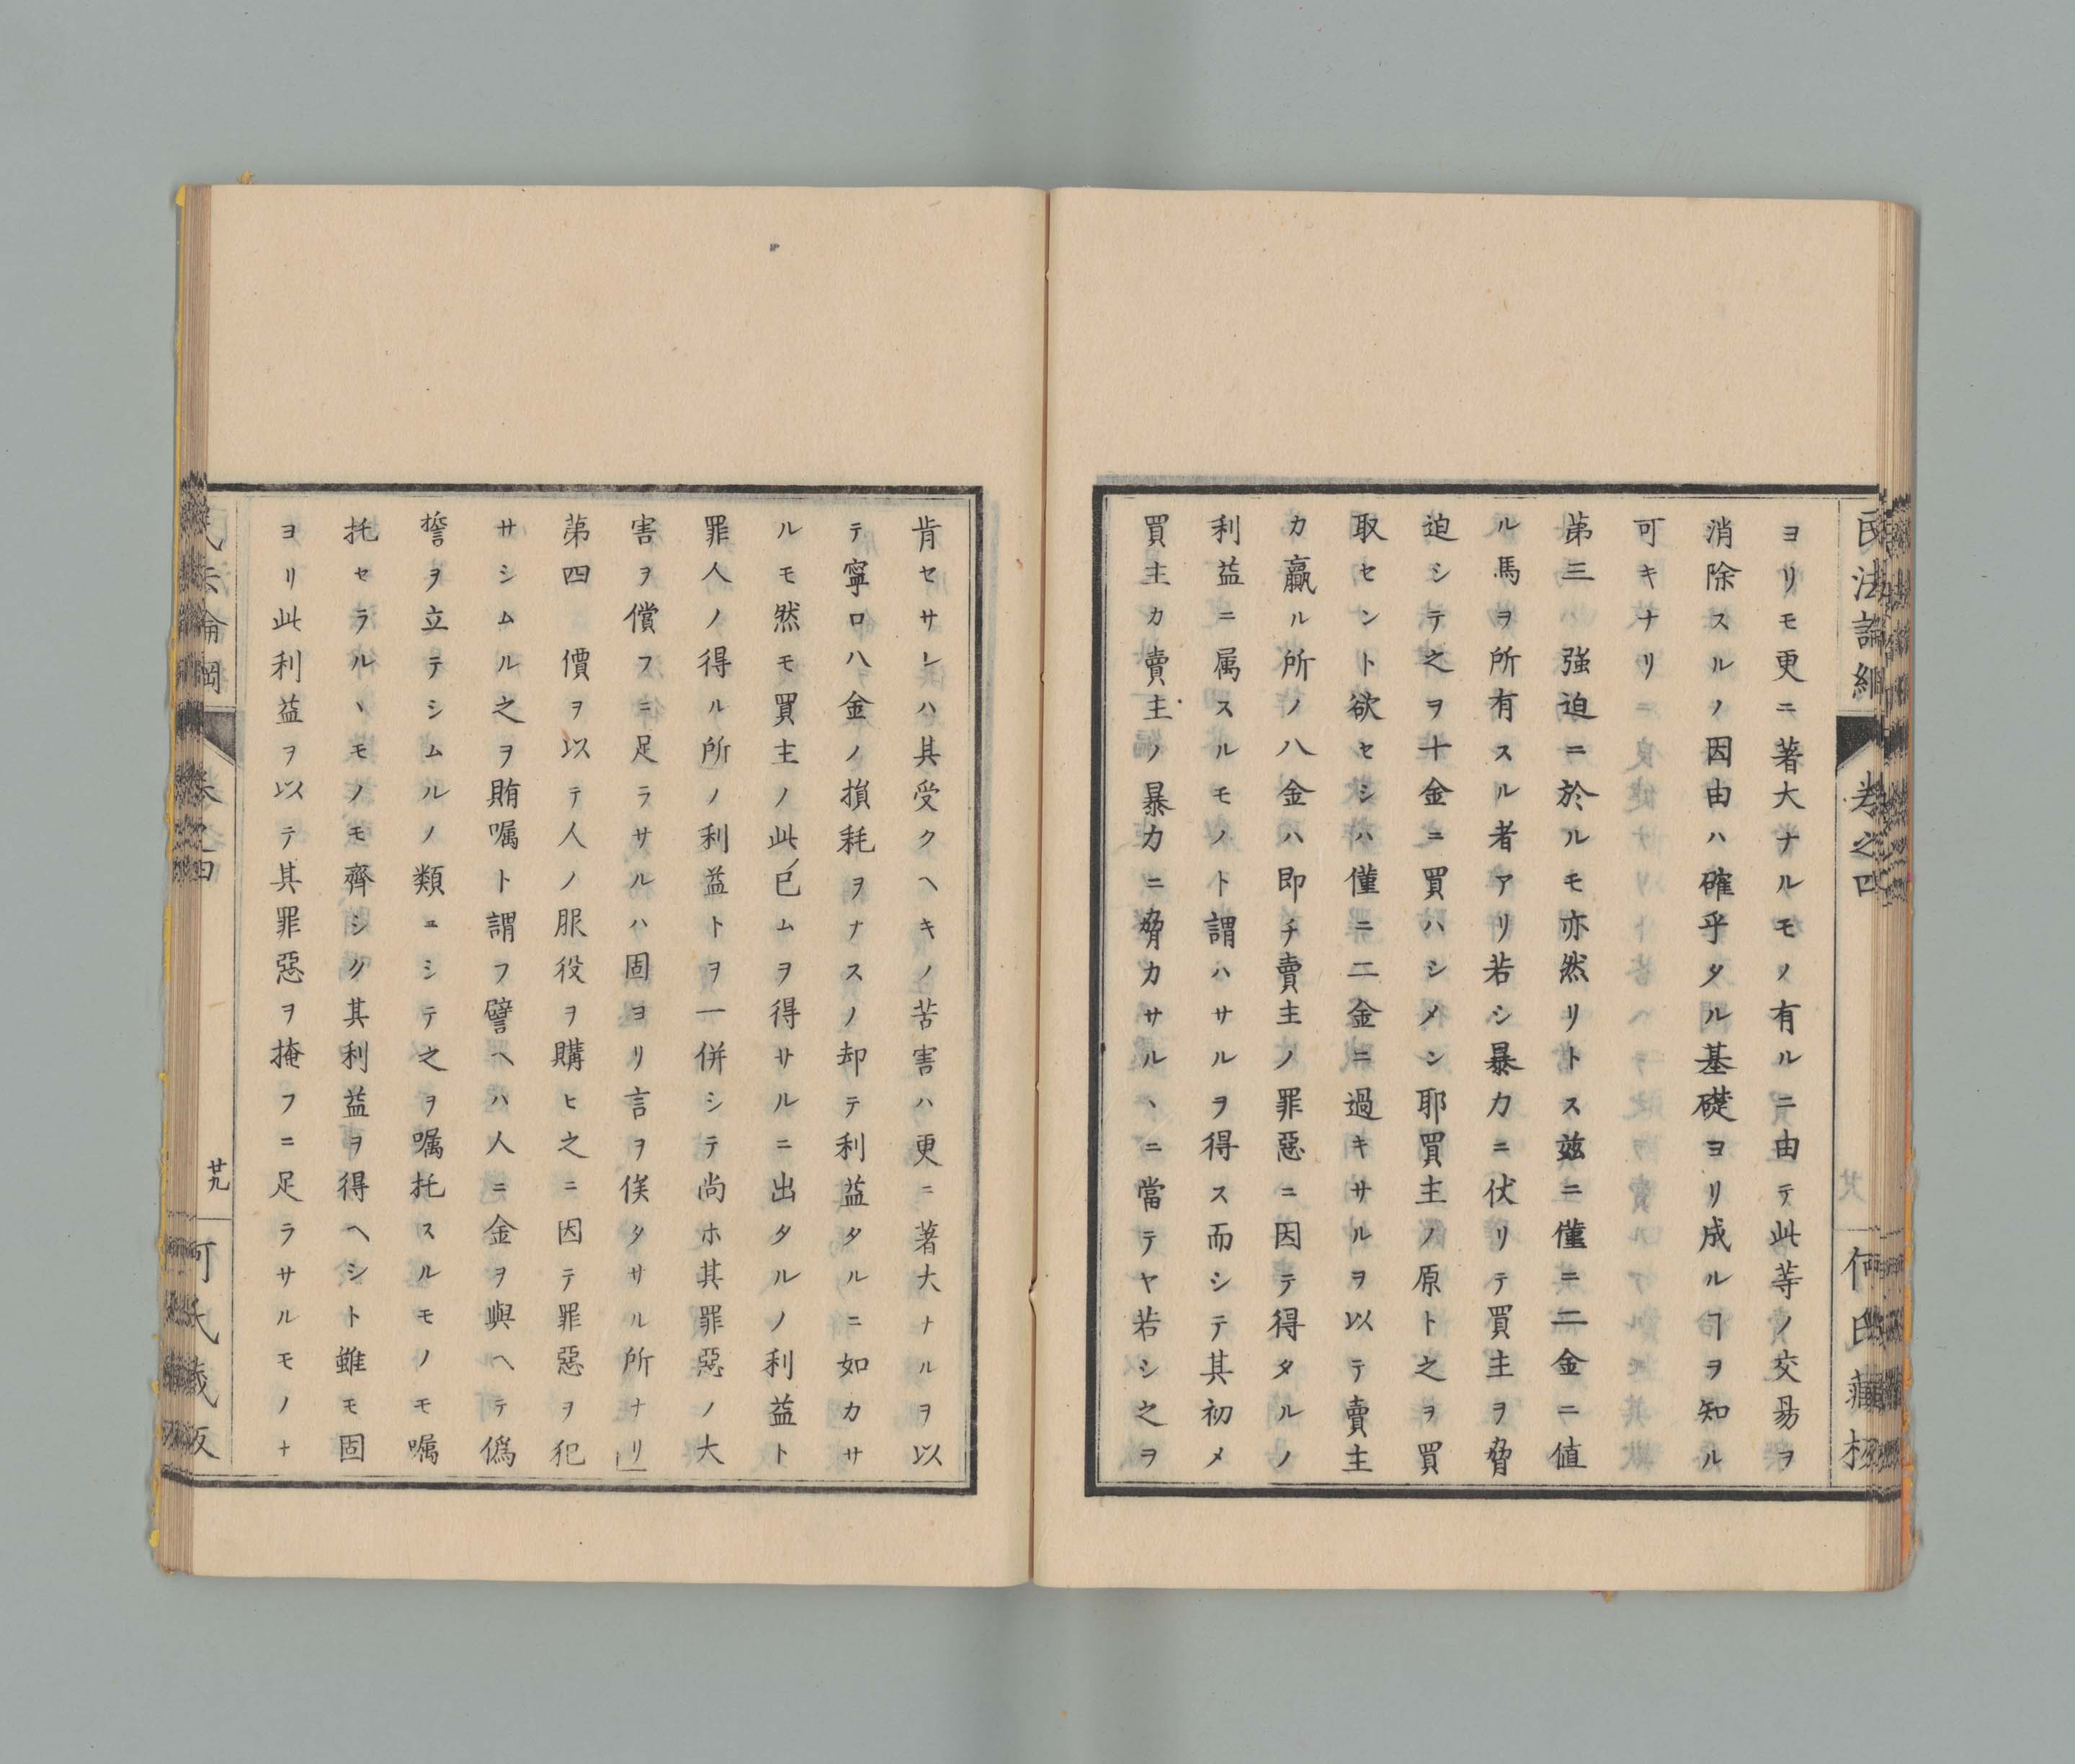 ヨリモ更ニ著大ナルモノ有ルニ由テ此等ノ交易ヲ
消除スルノ因由ハ確乎タル基礎ヨリ成ルヿヲ知ル
可キナリ
第三 強迫ニ於ルモ亦然リトス玆ニ僅ニ二金ニ値
ル馬ヲ所有スル者アリ若シ暴力ニ伏リテ買主ヲ脅
迫シテ之ヲ十金ニ買ハシメン耶買主ノ原ト之ヲ買
取セント欲セシハ僅ニ二金ニ過キサルヲ以テ賣主
カ贏ル所ノ八金ハ即チ賣主ノ罪惡ニ因テ得タルノ
利益ニ属スルモノト謂ハサルヲ得ス而シテ其初メ
買主カ賣主ノ暴力ニ脅カサルヽニ當テヤ若シ之ヲ
肯セサレハ其受クヘキノ苦害ハ更ニ著大ナルヲ以
テ寧ロ八金ノ損耗ヲナスノ却テ利益タルニ如カサ
ルモ然モ買主ノ此已ムヲ得サルニ出タルノ利益ト
罪人ノ得ル所ノ利益トヲ一併シテ尚ホ其罪惡ノ大
害ヲ償フニ足ラサルハ固ヨリ言ヲ俟タサル所ナリ
第四 價ヲ以テ人ノ服役ヲ購ヒ之ニ因テ罪惡ヲ犯
サシムル之ヲ賄嘱ト謂フ譬ヘハ人ニ金ヲ與ヘテ僞
誓ヲ立テシムルノ類ユシテ之ヲ嘱托スルモノモ嘱
托セラルヽモノモ齊シク其利益ヲ得ヘシト雖モ固
ヨリ此利益ヲ以テ其罪惡ヲ掩フニ足ラサルモノナ
民法論綱 卷之四
廿九
何氏藏板